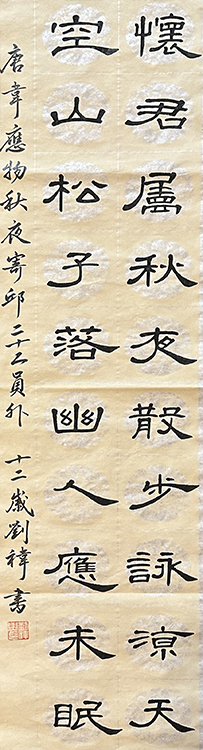 懷君屬秋夜散步詠涼天
空山松子落幽人應未眠
唐韋應物秋夜寄邱二十二員外 十二歲劉禕書